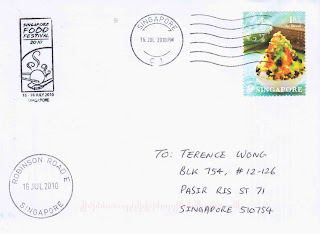 SINGAPORE
FOOD
FESTIVAL
2010
16 - 25 JULY 2010
SINGAPORE
SINGAPORE
16 JUL 2010
C 1
1st
SINGAPORE
ROBINSON ROAD E
16 JUL 2010
SINGAPORE
TO: TERENCE WONG
BLK 754, #12-126
PASIR RIS ST 71
SINGAPORE 510754